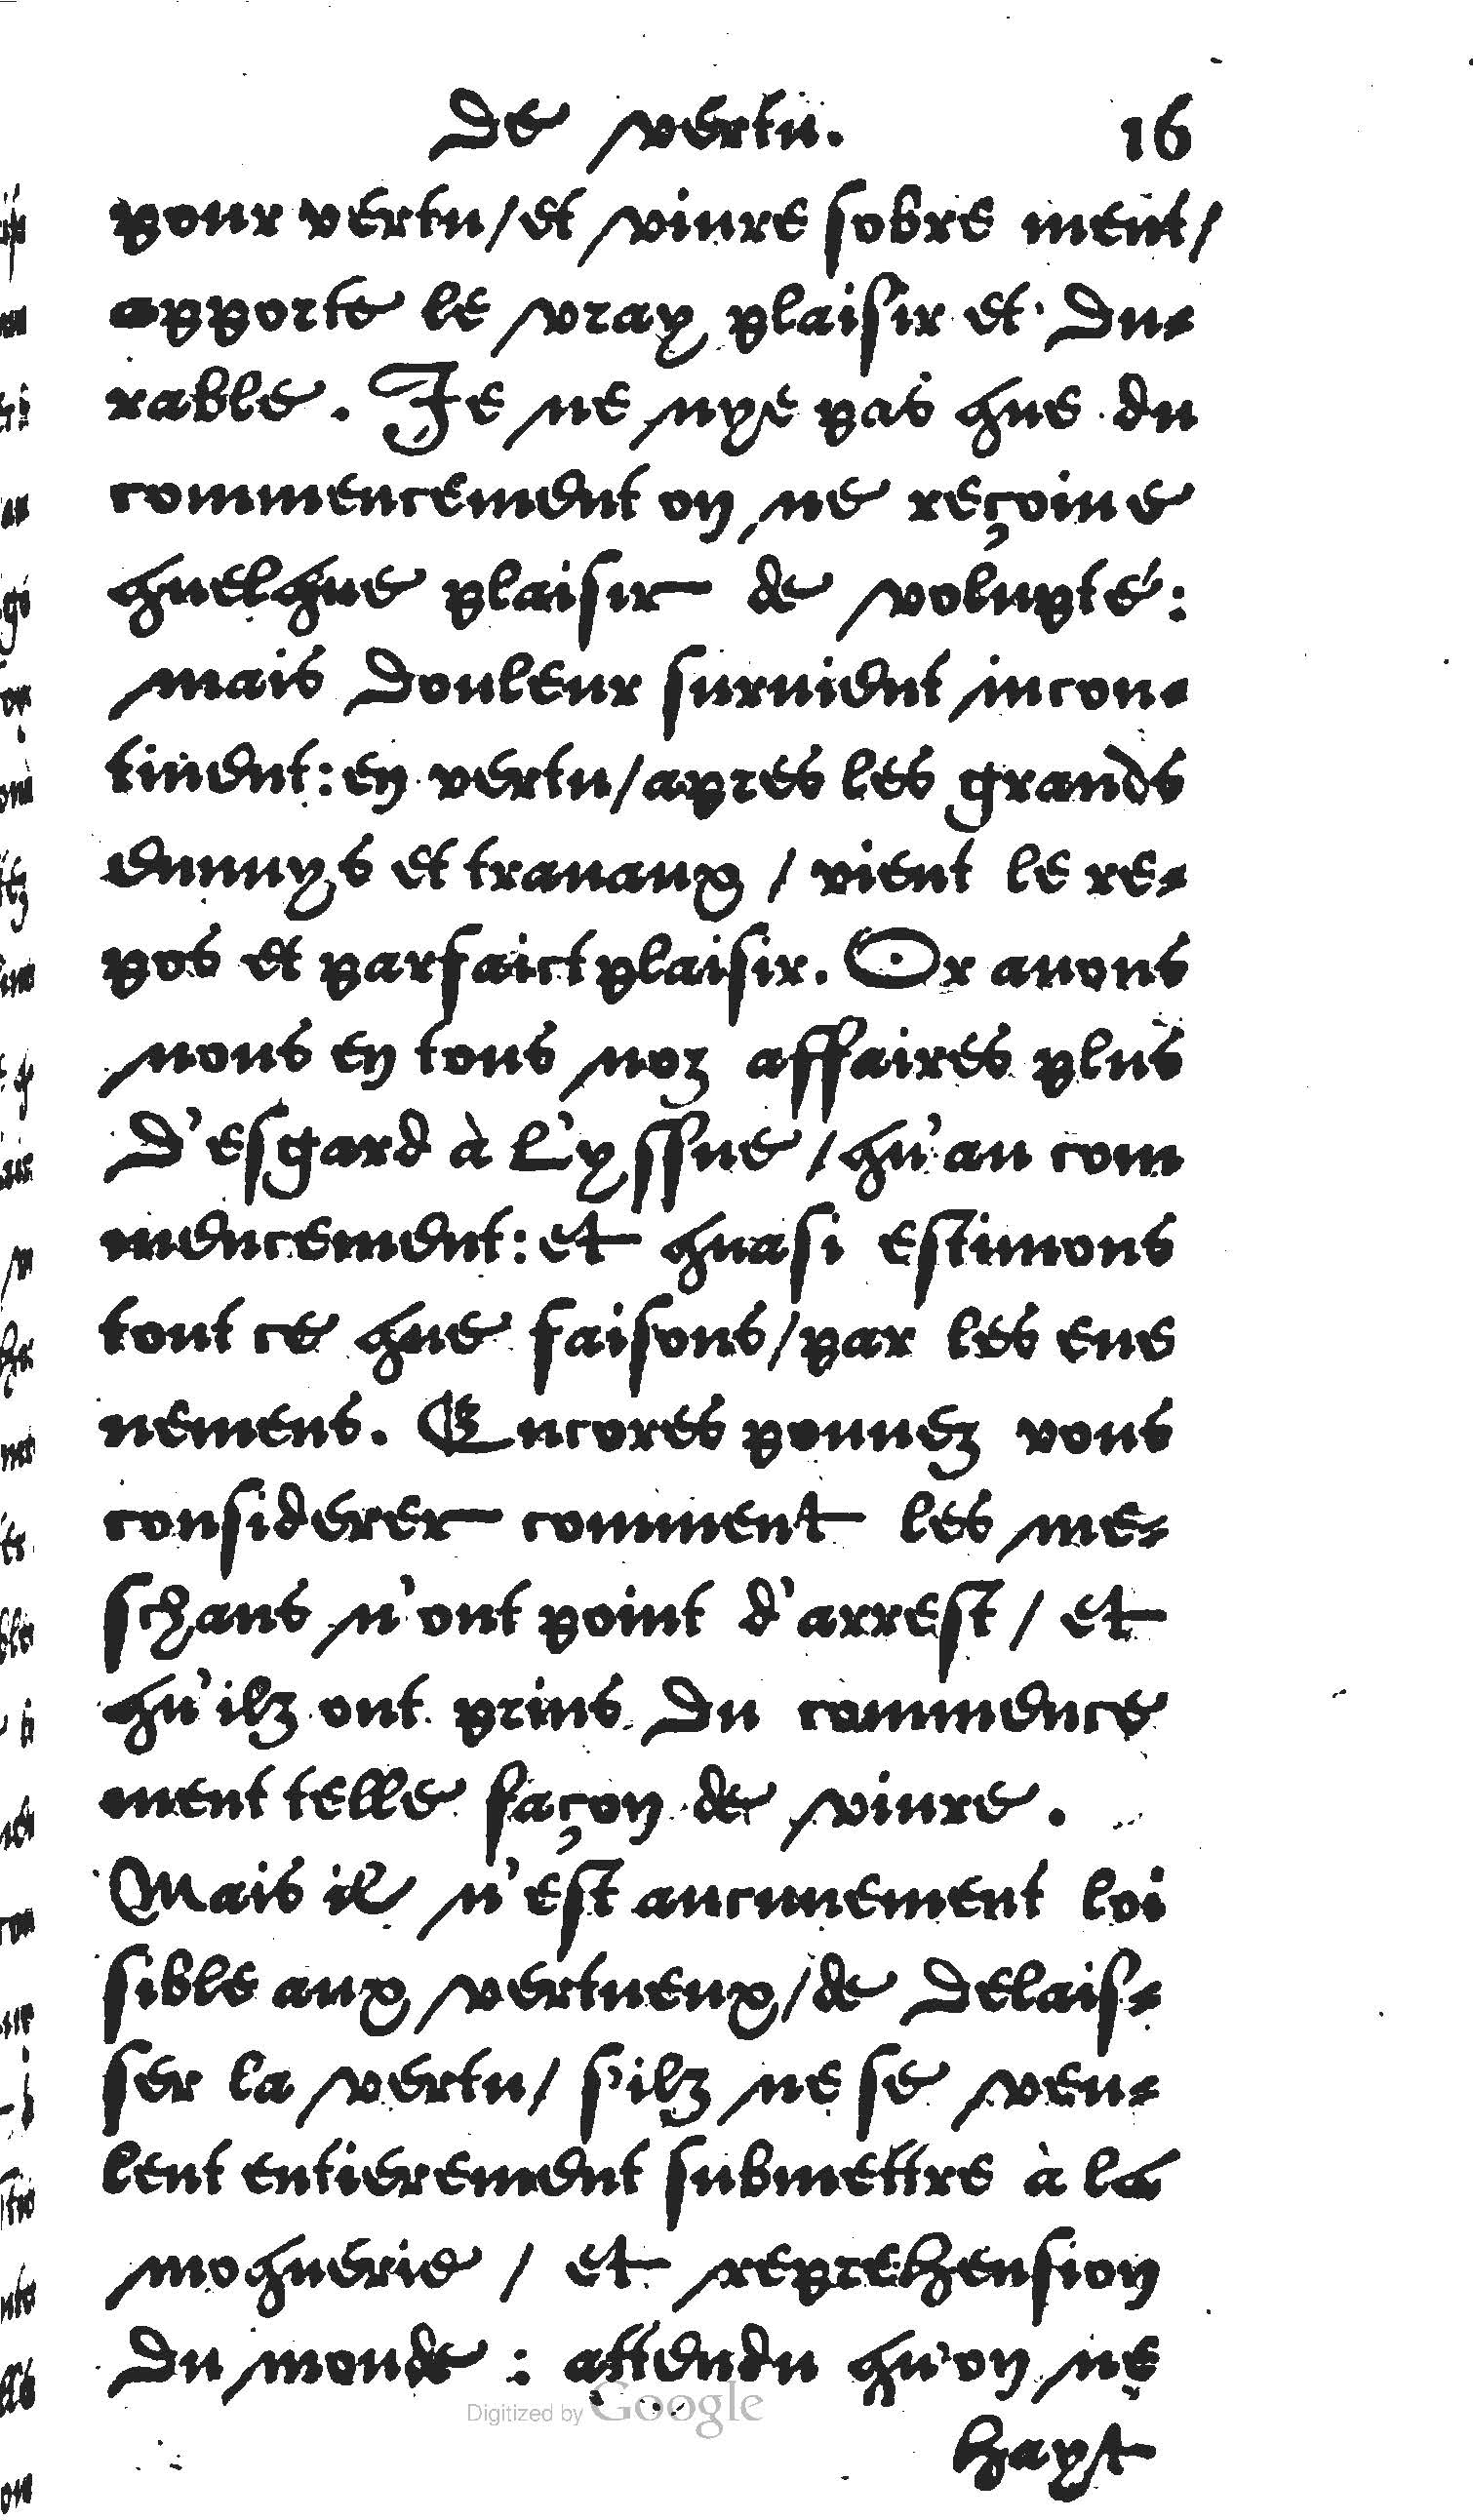 de vertu. 16
pour vertu/et viure sobre ment/
apporte le vray plaisir et du-
rable. Je ne nye pas que du
commencement on ne reçoiue
quelque plaisir de volupté:
mais douleur suruient incon-
tinent: en vertu/apres les grands
ennuys et trauaux / vient le re-
pos et parfaict plaisir. Or auons
nous en tous noz affaires plus
d'esgard à l'yssue / qu'au com
mencement: et quasi estimons
tout ce que faisons/par les eue
nemens. Encores pouuez vous
considerer comment les me-
schans n'ont point d'arrest / et
qu'ilz ont prins du commence
ment telle façon de viure.
Mais il n'est aucunement loi
sible aux vertueux/de delais-
ser la vertu/ s'ilz ne se veu-
lent entierement submettre à la
moquerie / et reprehension
du monde : attendu qu'on ne
hayt
Digitized by Google